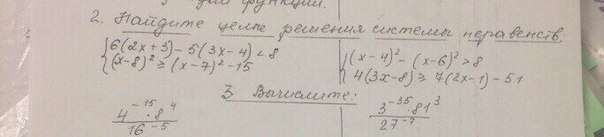 функции.
2. Найдите целые решения системы неравенств:
{6(2x+3)-5(3x-4)<8 {(x-4)²-(x-6)²>8
(x-8)²≥(x-7)²-15 4(3x-8)≥7(2x-1)-51
3 Вычислите:
4⁻¹⁵·8⁴ / 16⁻⁵ 3⁻³⁵·81³ / 27⁻⁷